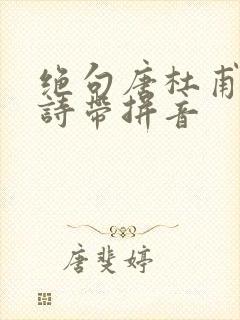 绝句唐杜甫
詩帶拼音
唐斐婷